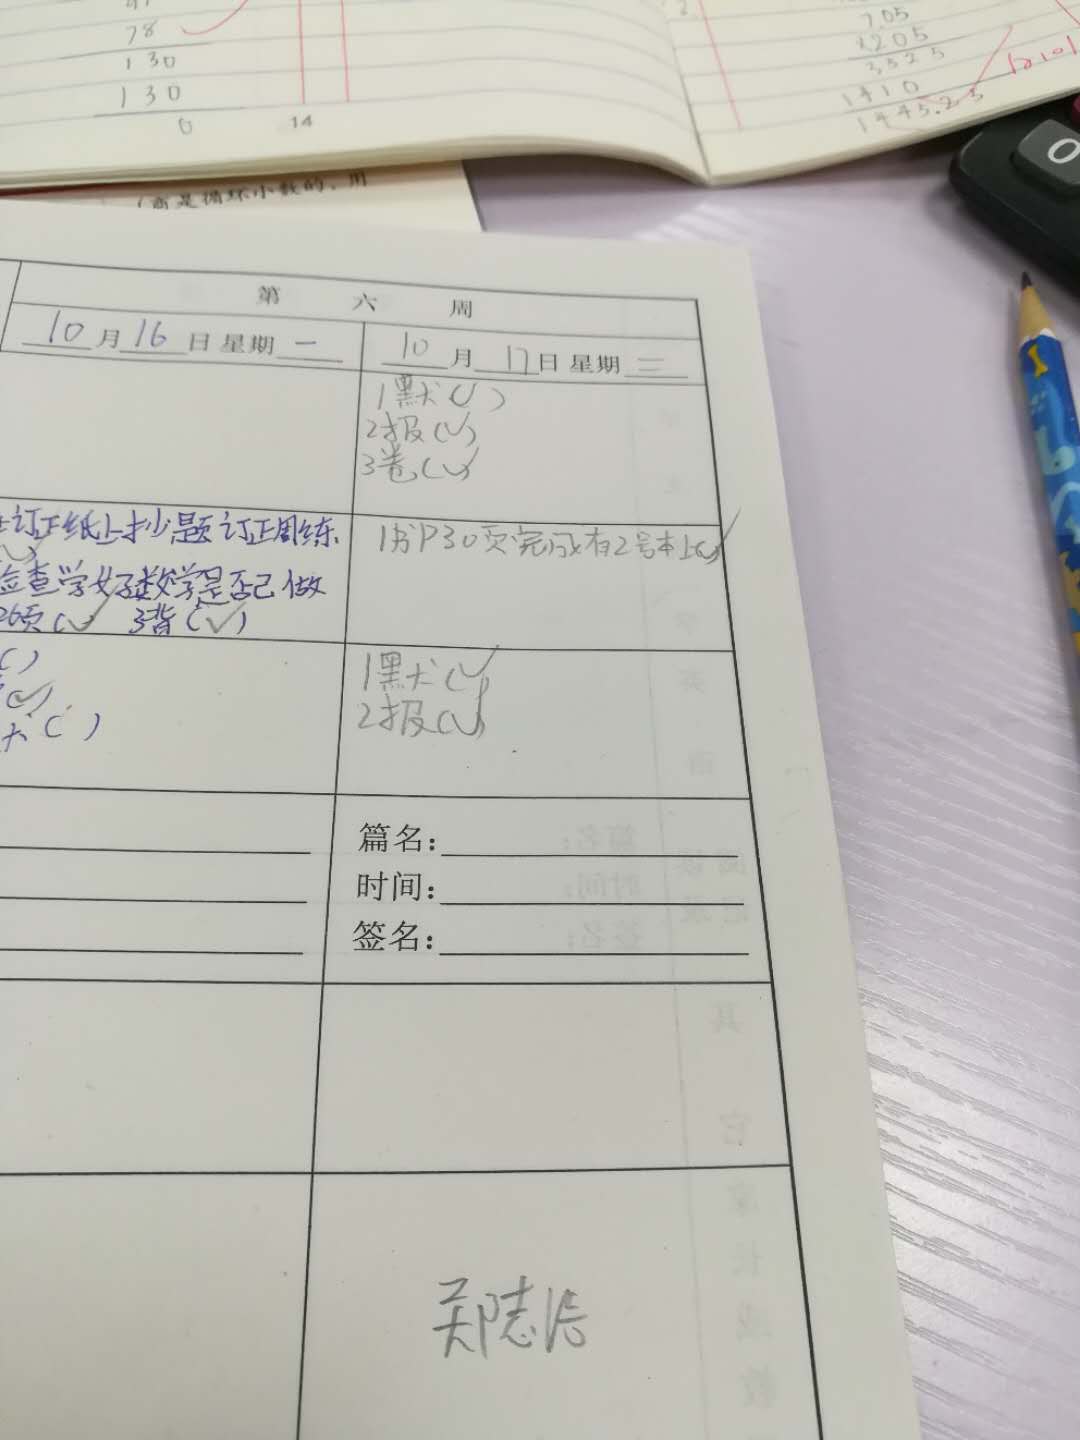 78
130
130
0
14
7.05
×205
3525
1410
1445.25
(商是循环小数的，用
0
第 六 周
10月16日星期一
10月17日星期二
1默(√)
2报(√)
3卷(√)
订正纸上抄题订正周练
检查学好数学是否已做
26页(√) 3背(√)
1书P30页完成有2号本上(√)
( )
(√)
( )
1默(√)
2报(√)
篇名:
时间:
签名:
郑志浩